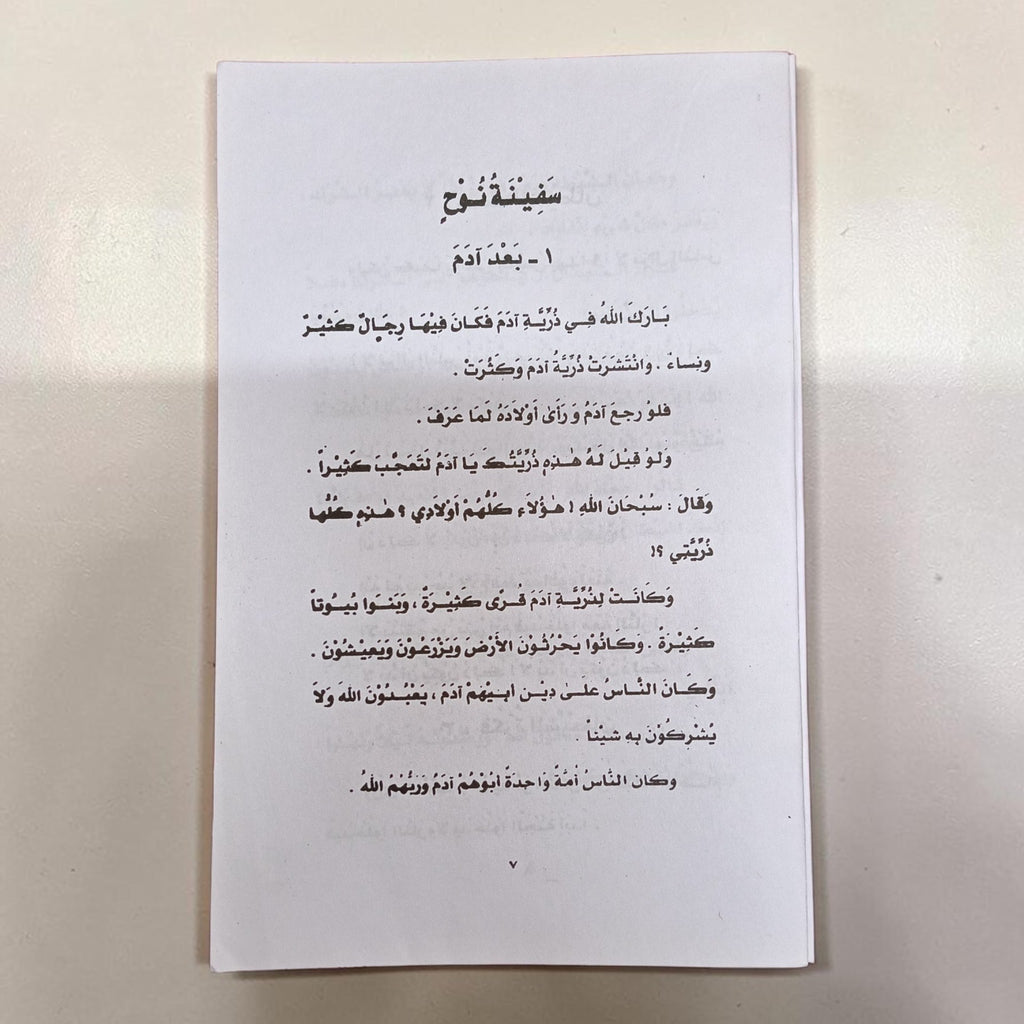 سَفِيْنَةُ نُوْحٍ
١ - بَعْدَ آدَمَ
بَارَكَ اللهُ فِي ذُرِّيَّةِ آدَمَ فَكَانَ فِيْهَا رِجَالٌ كَثِيْرٌ
ونساءٌ . وانْتَشَرَتْ ذُرِّيَّةُ آدَمَ وَكَثُرَتْ .
فلوْ رجعَ آدَمُ وَرَأَىٰ أَوْلَادَهُ لَمَا عَرَفَ .
وَلَوْ قِيْلَ لَهُ هٰذِهِ ذُرِّيَّتُكَ يَا آدَمُ لَتَعَجَّبَ كَثِيْراً .
وَقَالَ : سُبْحَانَ اللهِ ! هٰؤُلَاءِ كُلُّهُمْ أَوْلَادِي ؟ هٰذِهِ كُلُّها
ذُرِّيَّتِي ؟!
وَكَانَتْ لِذُرِّيَّةِ آدَمَ قُرًى كَثِيْرَةٌ ، وَبَنَوا بُيُوتاً
كَثِيْرَةً . وَكَانُوْا يَحْرُثُوْنَ الأَرْضَ وَيَزْرَعُوْنَ وَيَعِيْشُوْنَ .
وَكَانَ النَّاسُ عَلَىٰ دِيْنِ أبِيْهِمْ آدَمَ ، يَعْبُدُوْنَ اللهَ وَلاَ
يُشْرِكُوْنَ بِهِ شيْئاً .
وكان النَّاسُ أُمَّةً وَاحِدَةً أبُوْهُمْ آدَمُ وَرَبُّهُمُ اللهُ .
٧